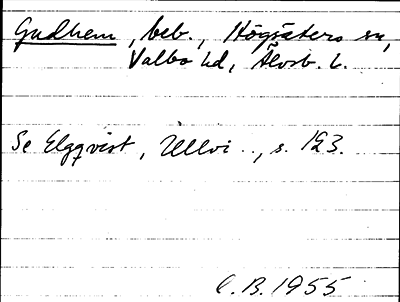 Gudhem, beb., Högsäters sn,
Valbo hd, Älvsb. l.
Se Elgqvist, Ullvi.., s. 123.
C.B. 1955